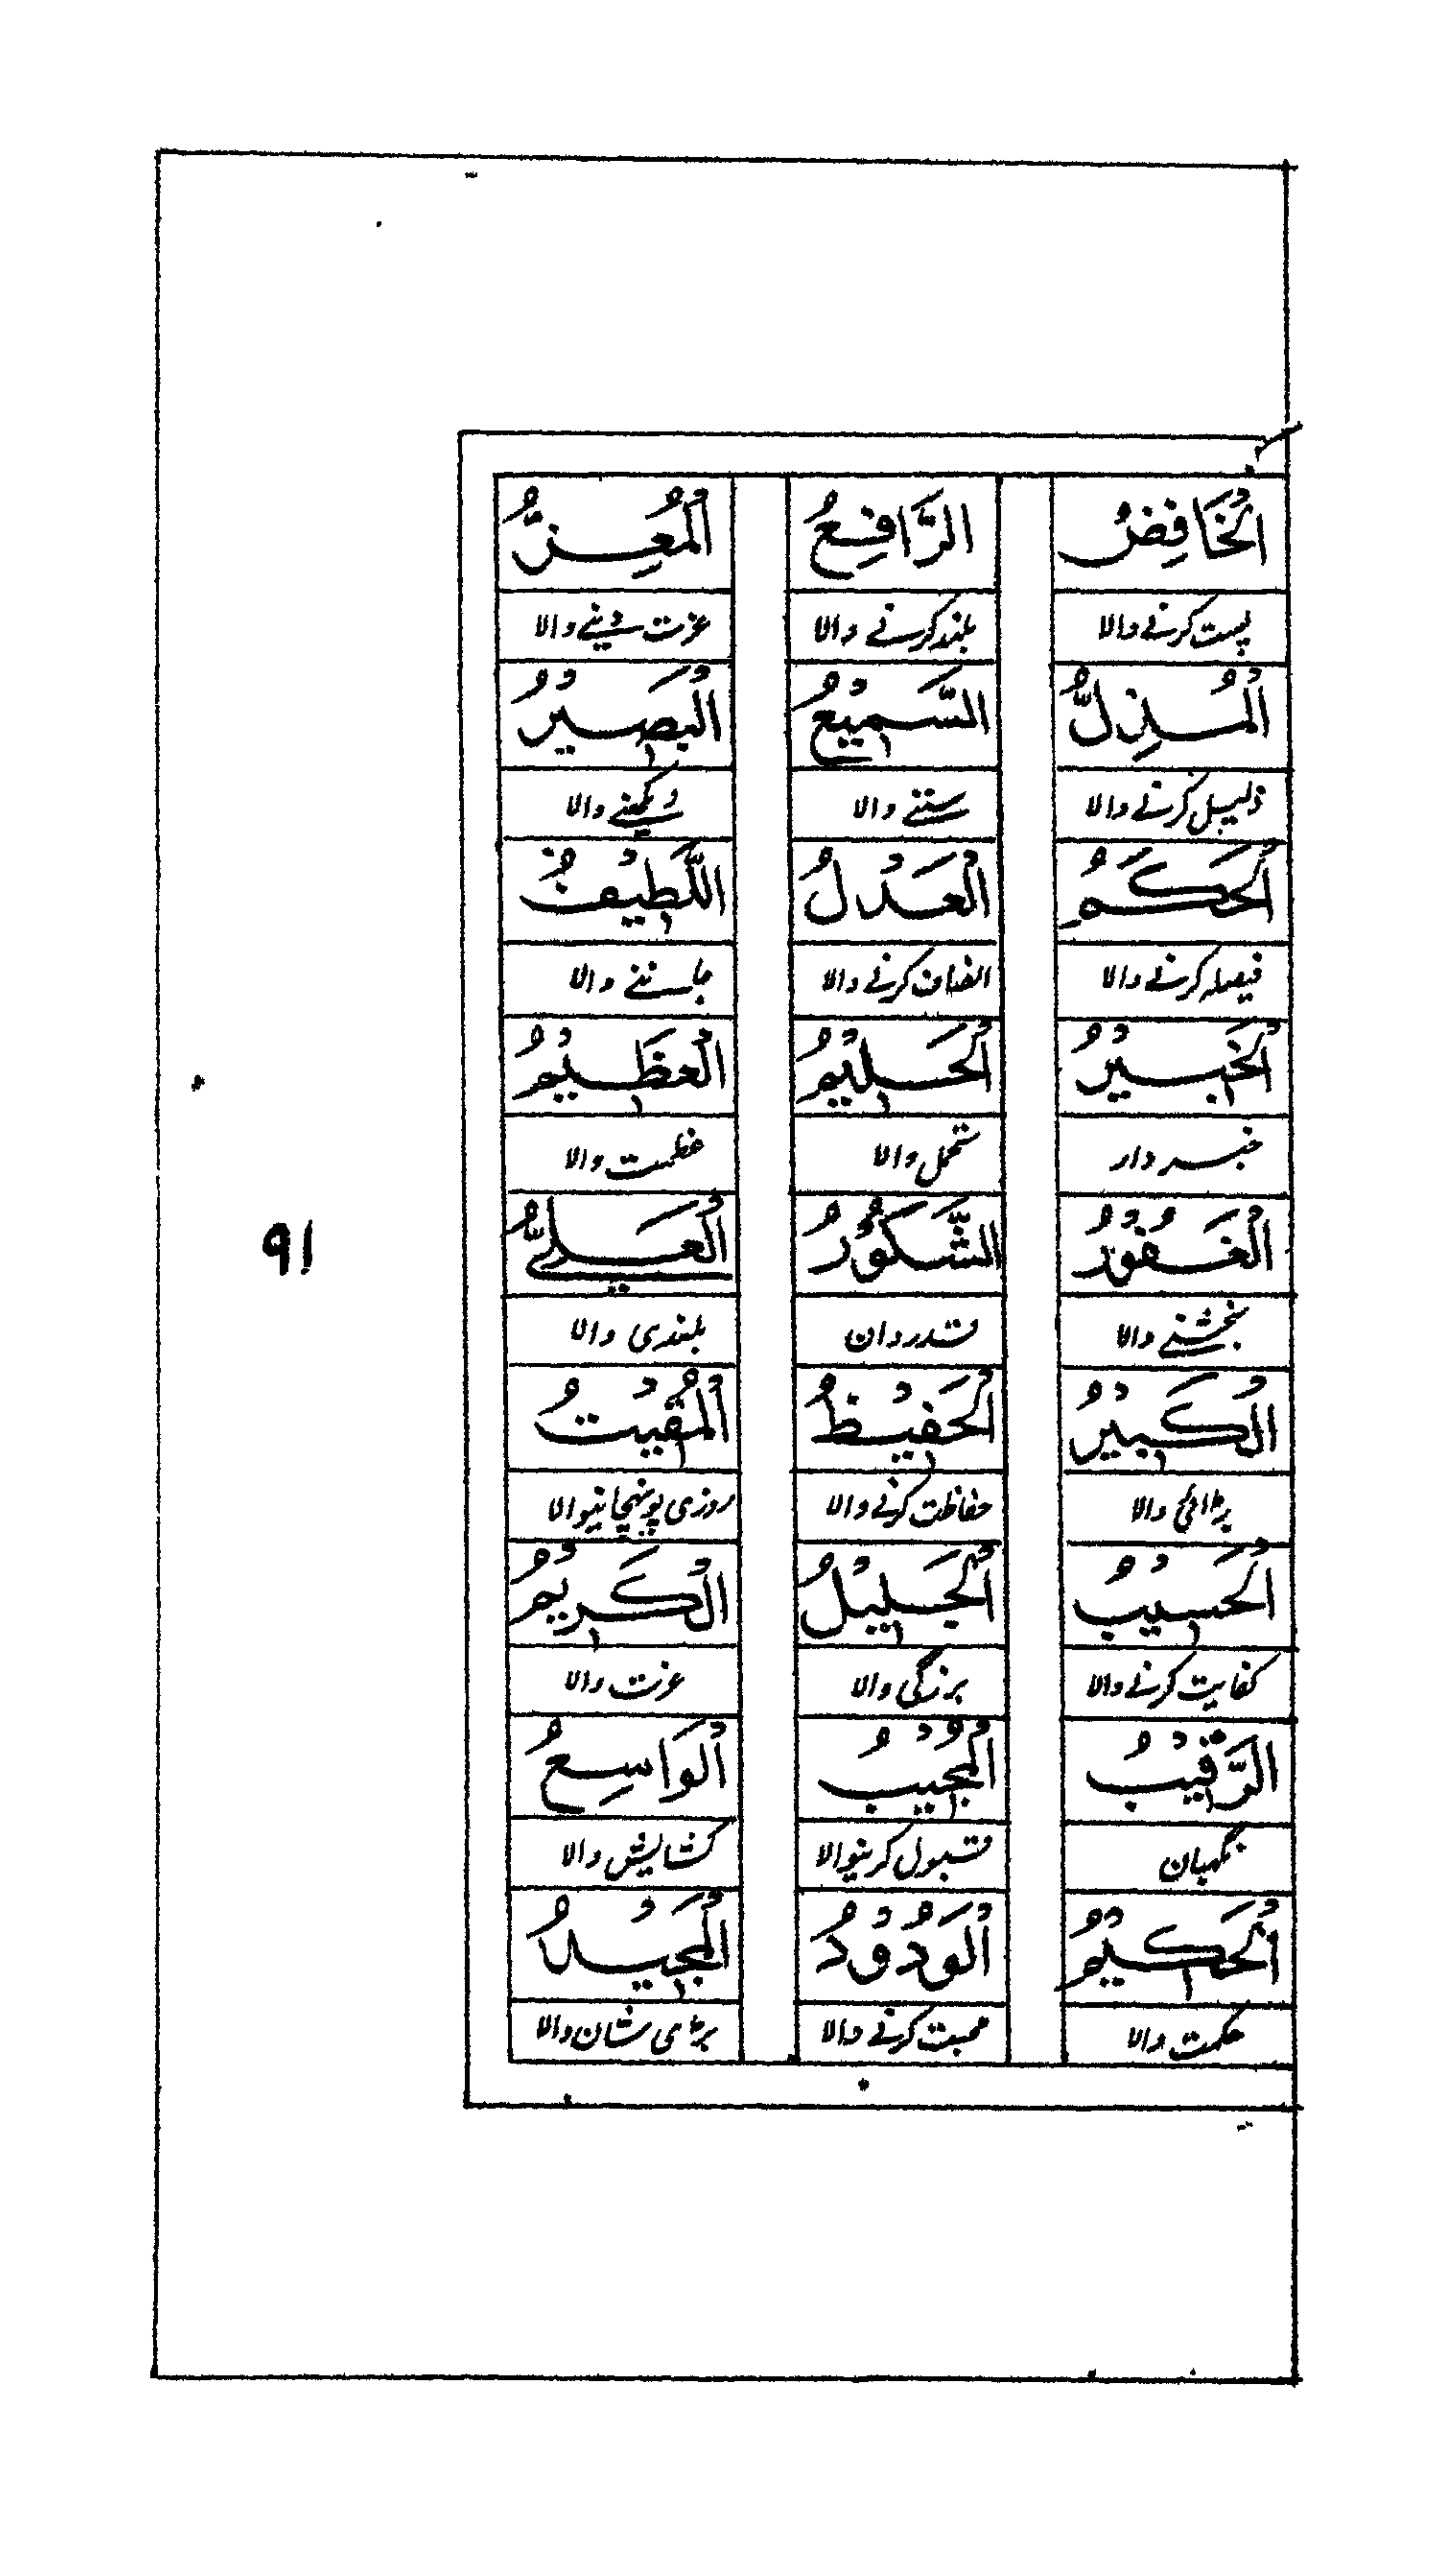 اَلْخَافِضُ اَلرَّافِعُ اَلْمُعِزُّ
پست کرنے والا بلند کرنے والا عزت دینے والا
اَلْمُذِلُّ اَلسَّمِيْعُ اَلْبَصِيْرُ
ذلیل کرنے والا سننے والا دیکھنے والا
اَلْحَكَمُ اَلْعَدْلُ اَللَّطِيْفُ
فیصلہ کرنے والا انصاف کرنے والا جاننے والا
اَلْخَبِيْرُ اَلْحَلِيْمُ اَلْعَظِيْمُ
خبردار تحمل والا عظمت والا
اَلْغَفُوْرُ اَلشَّكُوْرُ اَلْعَلِيُّ
بخشنے والا قدردان بلندی والا
اَلْكَبِيْرُ اَلْحَفِيْظُ اَلْمُقِيْتُ
بڑائی والا حفاظت کرنے والا روزی پونہچانیوالا
اَلْحَسِيْبُ اَلْجَلِيْلُ اَلْكَرِيْمُ
کفایت کرنے والا بزرگی والا عزت والا
اَلرَّقِيْبُ اَلْمُجِيْبُ اَلْوَاسِعُ
نگہبان قبول کرنیوالا کشایش والا
اَلْحَكِيْمُ اَلْوَدُوْدُ اَلْمَجِيْدُ
حکمت والا محبت کرنے والا بڑی شان والا
۹۱